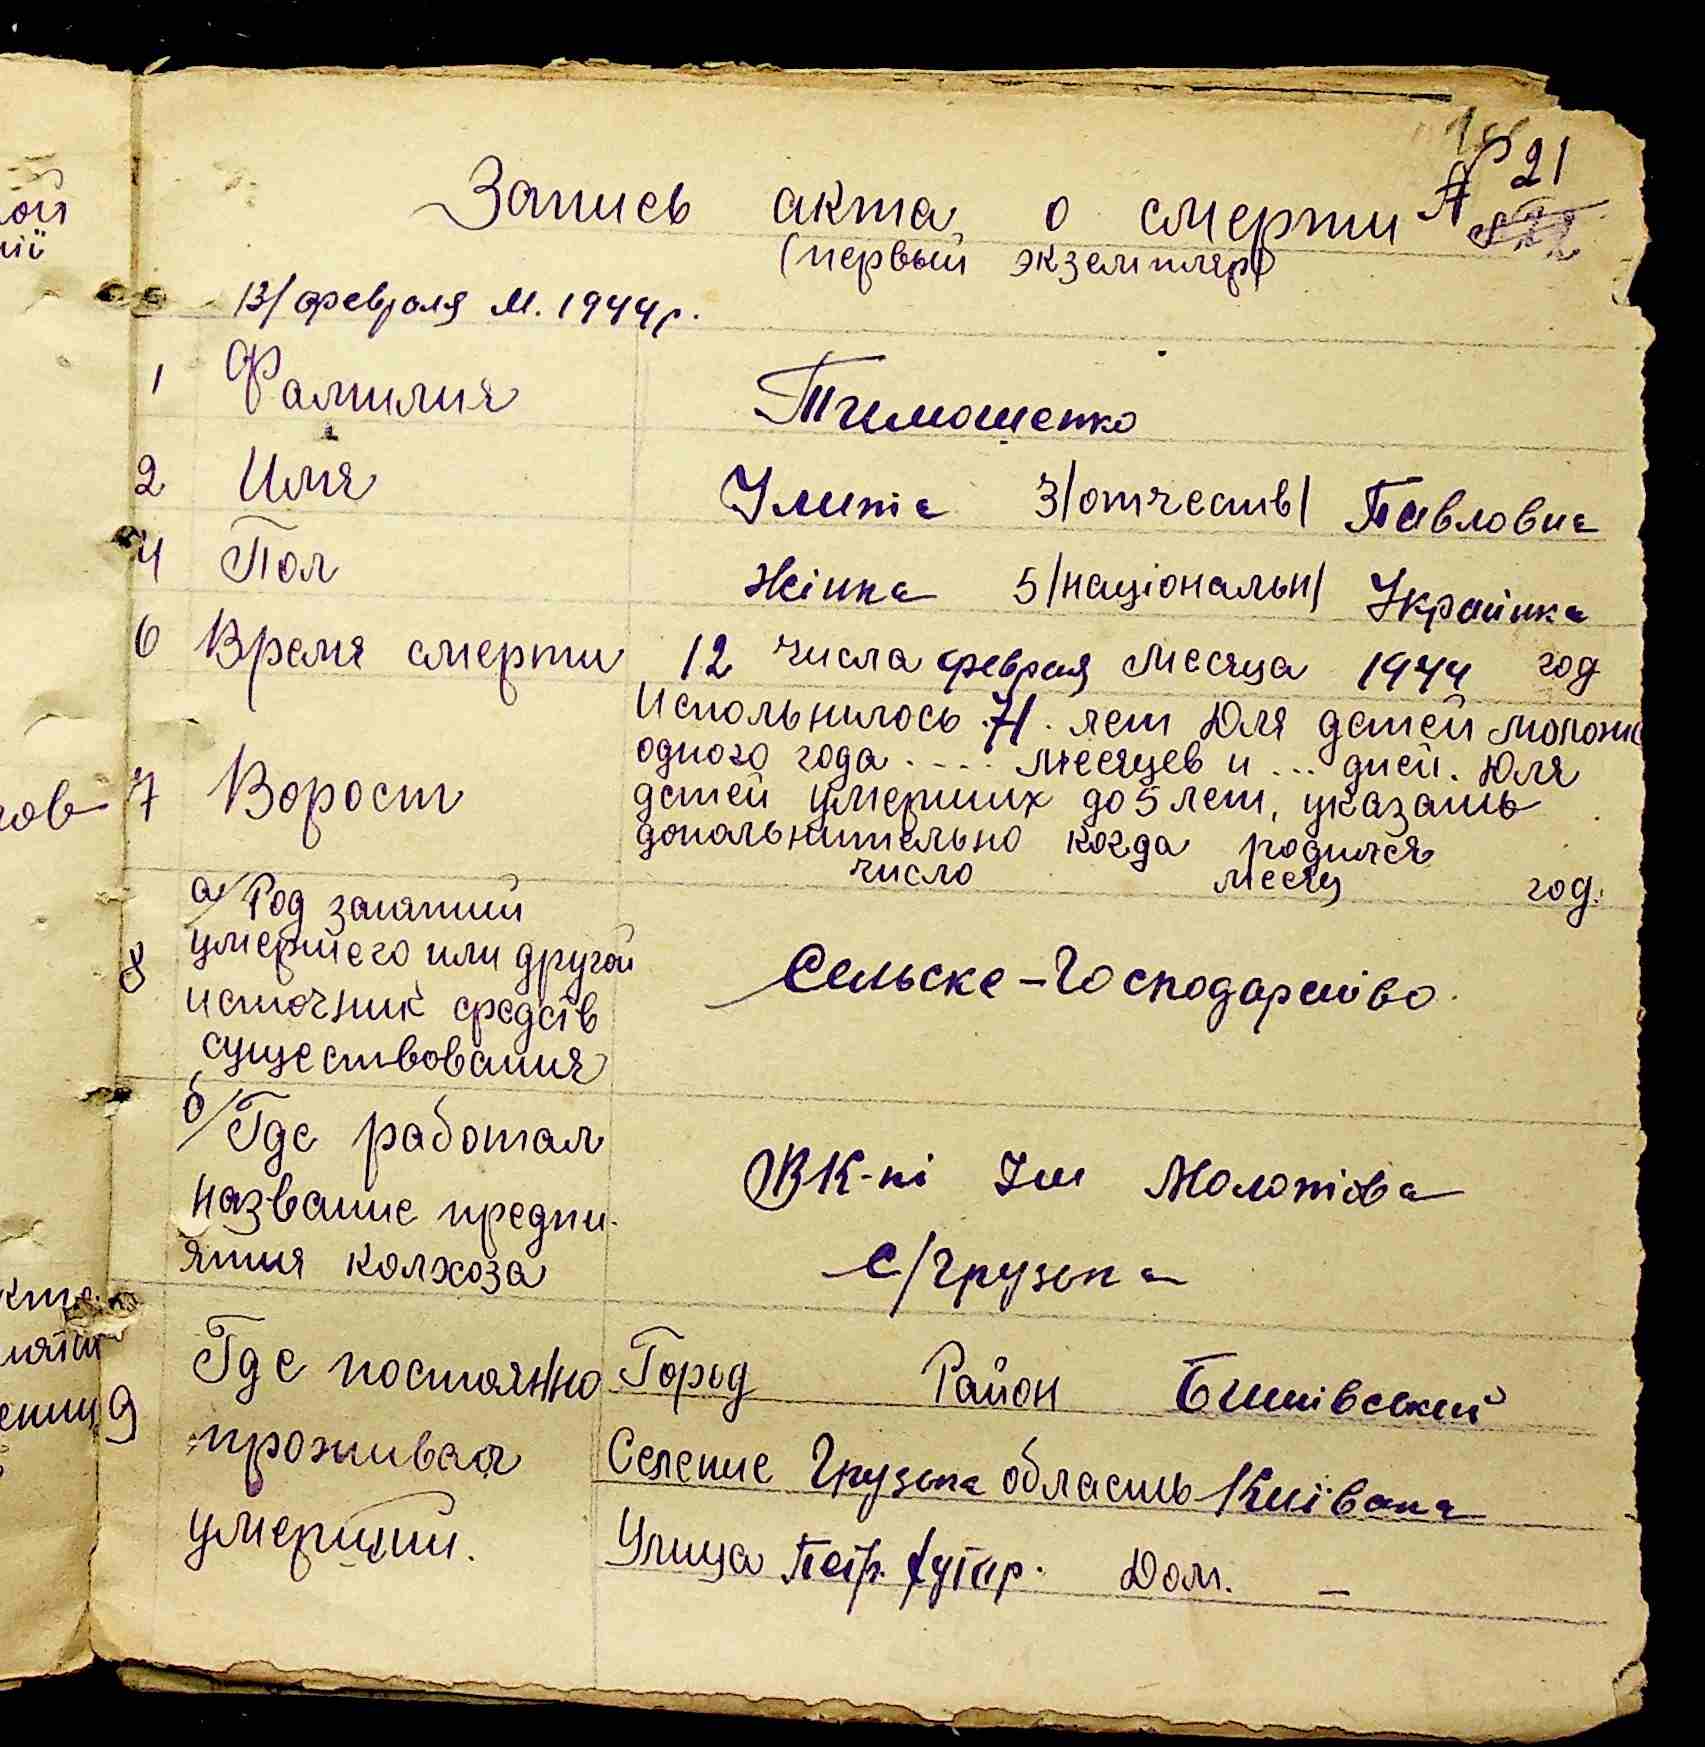 Запись акта о смерти № 21
(первый экземпляр)
13/ февраля м. 1944 р.
1 Фамилия Тимошенко
2 Имя Улита 3/отчеств/ Павловна
4 Пол Жінка 5/національн/ Українка
6 Время смерти 12 числа февраля месяца 1944 год
Испольнилось 71 лет Для детей моложе
одного года .... месяцев и ... дней. Для
7 Ворост детей умерших до 5 лет, указать
допольнительно когда родился
число месяц год.
а/ Род занятий
умершего или другой
8 источник средств
существования
Сельске-Господарство
б/ Где работал
название предпи-
ятия колхоза
ВК-пі Ім Молотова
с/Грузька
9 Где постоянно
проживал
умерший.
Город Район Бишівський
Селение Грузька область Київська
Улица Петр. хутір. Дом. –